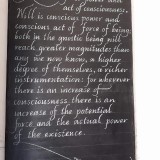 power and
act of consciousness.
Will is conscious power and
conscious act of force of being;
both in the gnostic being will
reach greater magnitudes than
any we now know, a higher
degree of themselves, a richer
instrumentation: for wherever
there is an increase of
consciousness, there is an
increase of the potential
force and the actual power
of the existence.